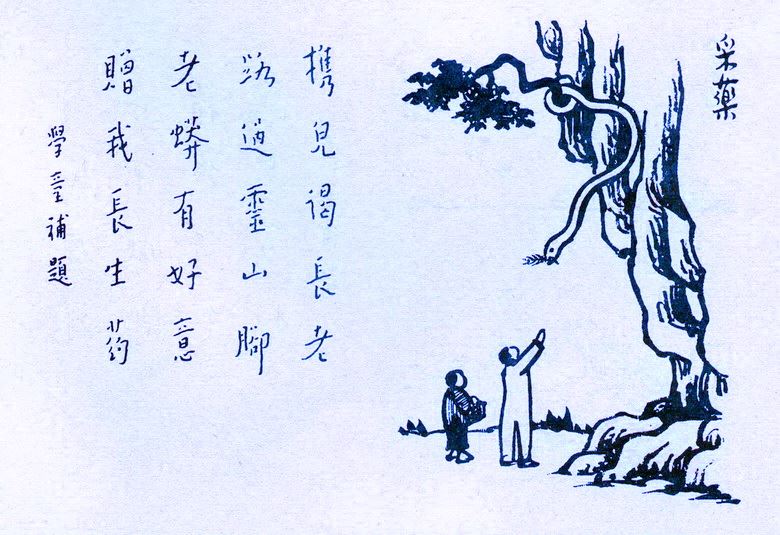 采藥
携兒謁長老
路過靈山腳
老蟒有好意
贈我長生药
學童補題